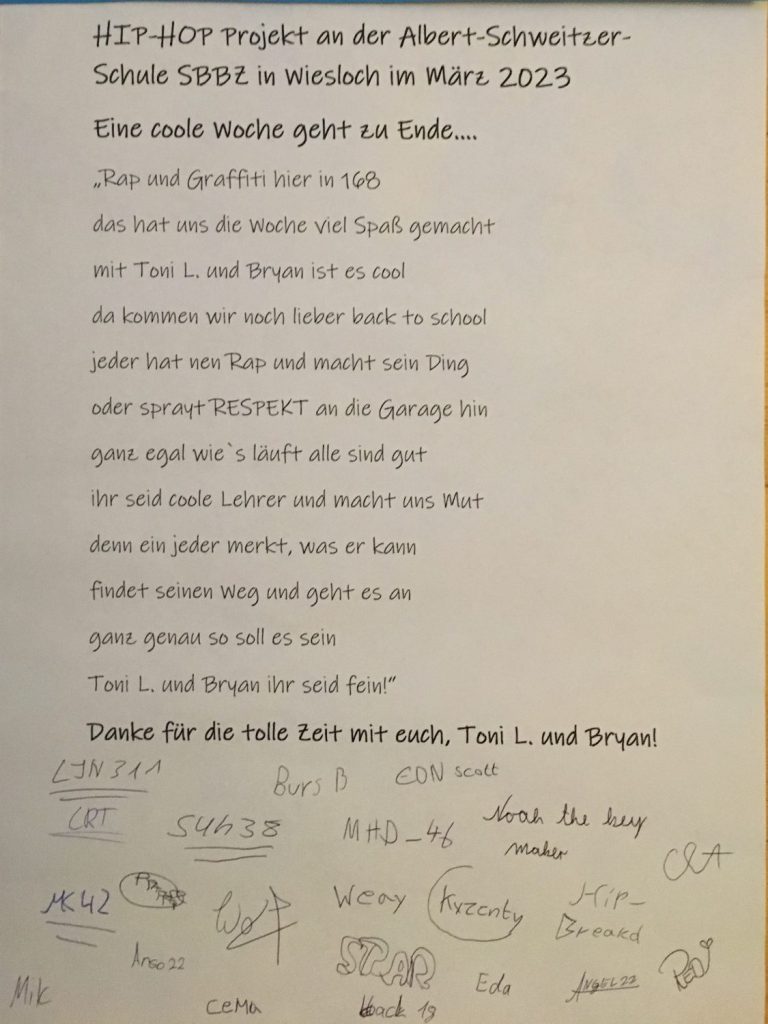 HIP-HOP Projekt an der Albert-Schweitzer-
Schule SBBZ in Wiesloch im März 2023
Eine coole Woche geht zu Ende....
„Rap und Graffiti hier in 168
das hat uns die Woche viel Spaß gemacht
mit Toni L. und Bryan ist es cool
da kommen wir noch lieber back to school
jeder hat nen Rap und macht sein Ding
oder sprayt RESPEKT an die Garage hin
ganz egal wie`s läuft alle sind gut
ihr seid coole Lehrer und macht uns Mut
denn ein jeder merkt, was er kann
findet seinen Weg und geht es an
ganz genau so soll es sein
Toni L. und Bryan ihr seid fein!“
Danke für die tolle Zeit mit euch, Toni L. und Bryan!
LJN311
Burs B
EON scott
CRT
MHD_46
Noah the key
maker
MK42
Weay
Hip-
Breakd
Angel22
Eda
Mik
CeMa